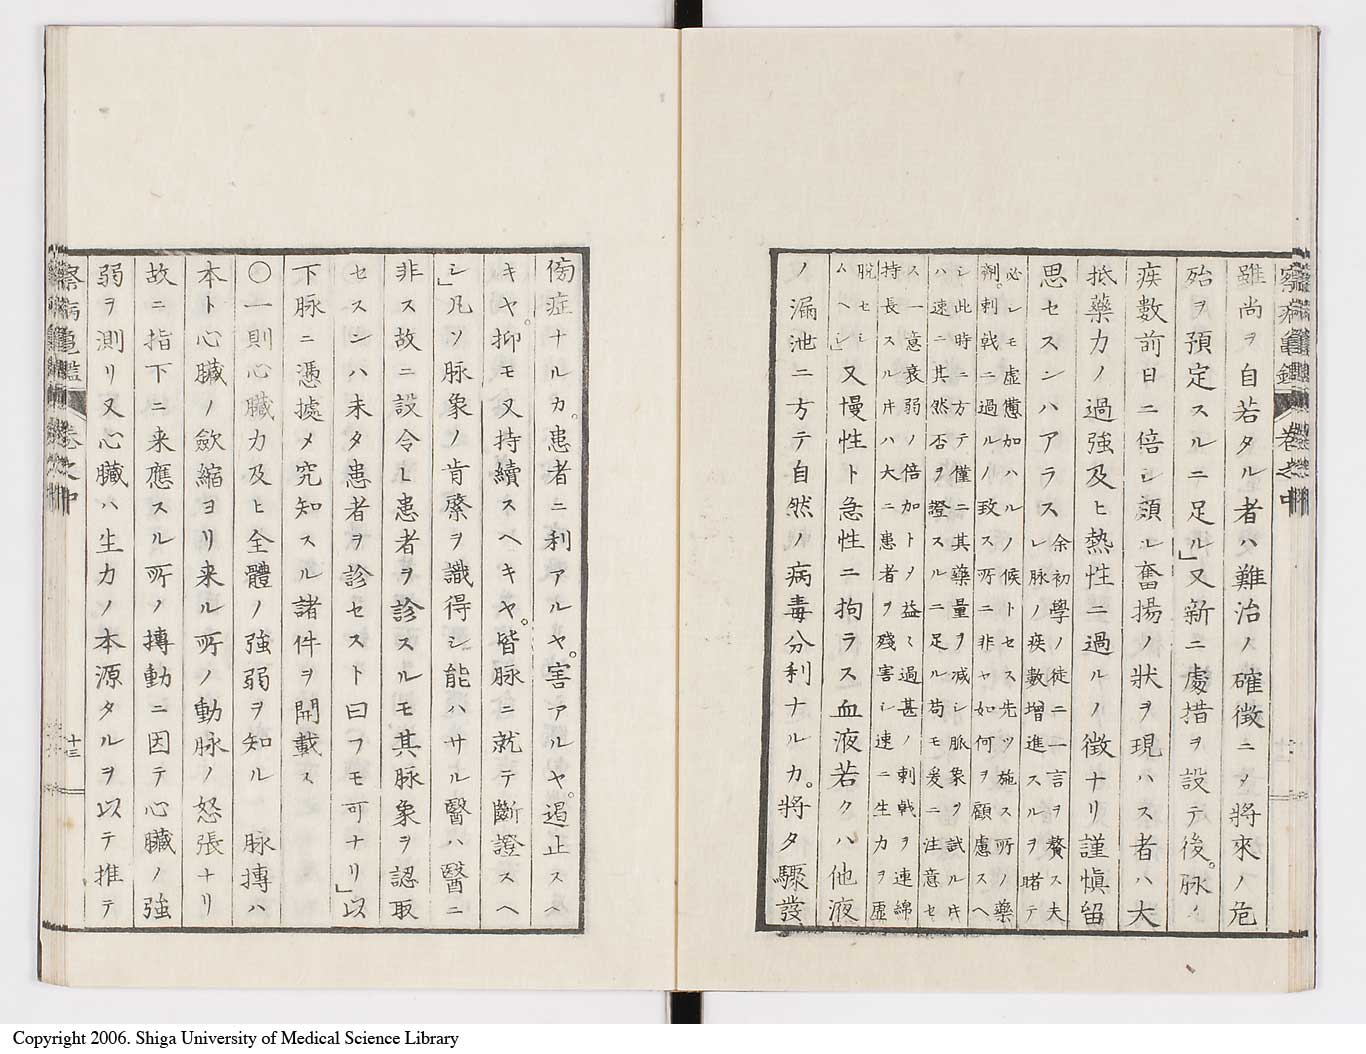 察病亀鑑 巻之中
雖尚ヲ自若タル者ハ難治ノ確徴ニメ將來ノ危
殆ヲ預定スルニ足ル」又新ニ處措ヲ設テ後。脉ノ
疾數前日ニ倍シ頗ル奮揚ノ狀ヲ現ハス者ハ大
抵藥力ノ過強及ヒ熱性ニ過ルノ徴ナリ謹愼留
思セスンハアラス
余初學ノ徒ニ一言ヲ贅ス夫
レ脉ノ疾數增進スルヲ睹テ
必シモ虚憊加ハルノ候トセス先ツ施ス所ノ藥
劑。刺戟ニ過ルノ致ス所ニ非ヤ如何ヲ顧慮スヘ
シ此時ニ方テ僅ニ其藥量ヲ减シ脈象ヲ試ルキ
ハ速ニ其然否ヲ證スルニ足ル苟モ爰ニ注意セ
ス一意衰弱ノ倍加トメ益〻過甚ノ刺戟ヲ連綿
持長スルキハ大ニ患者ヲ殘害シ速ニ生力ヲ虚
脱セシ
ムヘシ」
又慢性ト急性ニ拘ラス血液若クハ他液
ノ漏泄ニ方テ自然ノ病毒分利ナルカ。將タ驟發
傍症ナルカ。患者ニ利アルヤ。害アルヤ。遏止スヘ
キヤ。抑モ又持續スヘキヤ。皆脉ニ就テ斷證スヘ
シ」凡ソ脉象ノ肯綮ヲ識得シ能ハサル醫ハ醫ニ
非ス故ニ設令ヒ患者ヲ診スルモ其脉象ヲ認取
セスンハ未タ患者ヲ診セスト曰フモ可ナリ」以
下脉ニ憑據メ究知スル諸件ヲ開載ス
〇一則心臓力及ヒ全體ノ強弱ヲ知ル 脉搏ハ
本ト心臓ノ歛縮ヨリ来ル所ノ動脉ノ怒張ナリ
故ニ指下ニ来應スル所ノ搏動ニ因テ心臓ノ強
弱ヲ測リ又心臓ハ生力ノ本源タルヲ以テ推テ
察病亀鑑 巻之中
十三